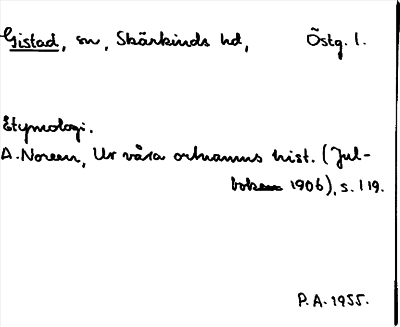 Gistad, sn, Skärkinds hd, Östg. l.
Etymologi.
A. Noreen, Ur våra ortnamns hist. (Jul-
boken 1906), s. 119.
P.A. 1955.